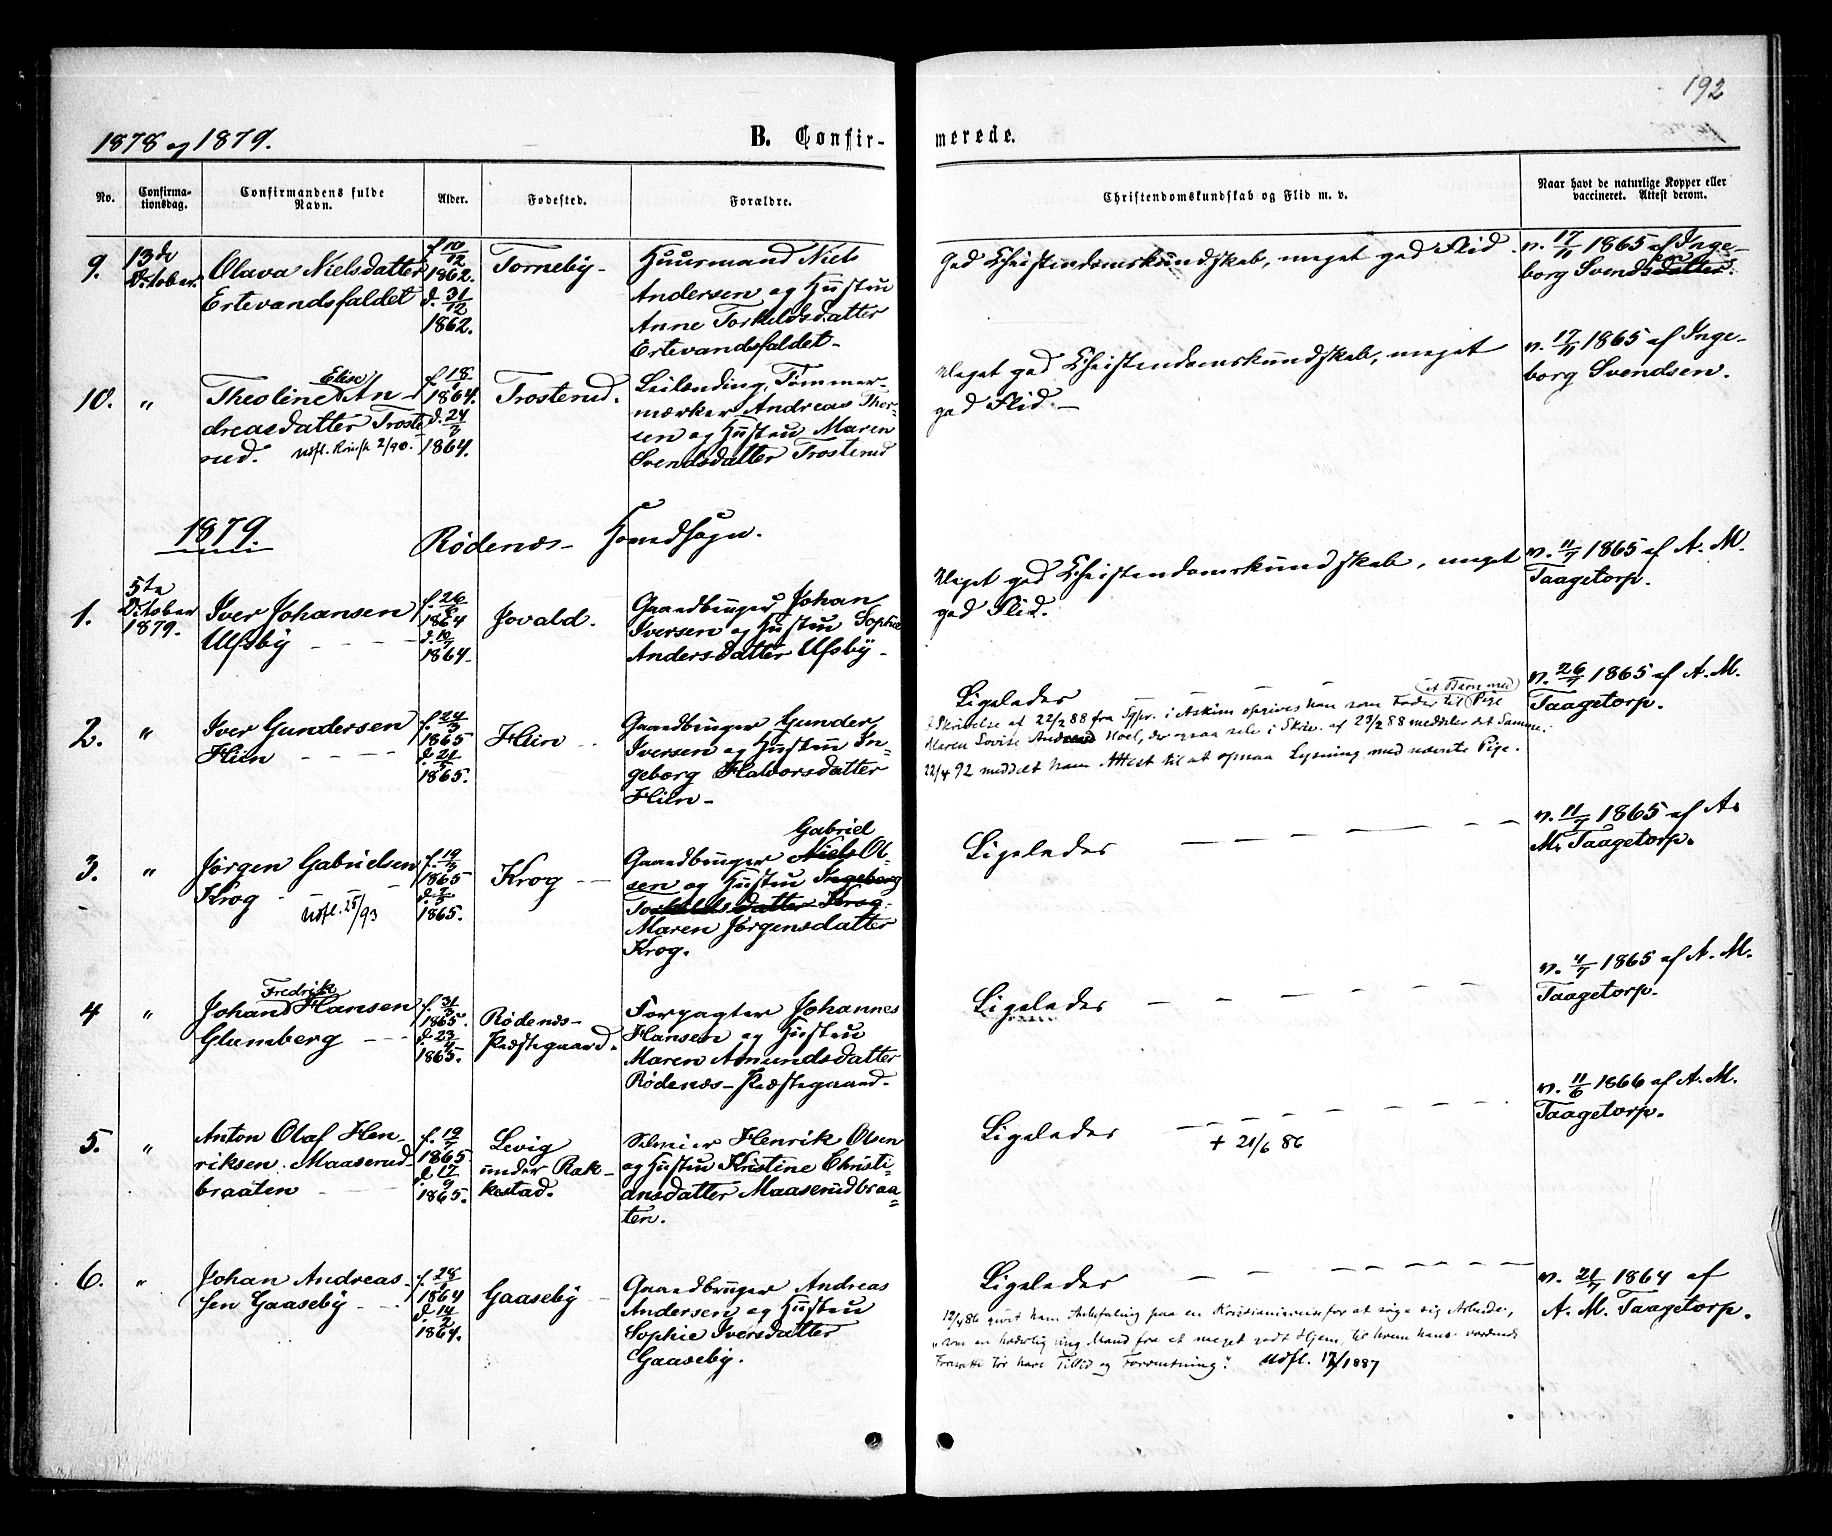 192
1878 og 1879.
B. Confir-
merede.
No.
Confirma-
tionsdag.
Confirmandens fulde
Navn.
Alder.
Fødested.
Forældre.
Christendomskundskab og Flid m. v.
Naar havt de naturlige Kopper eller
vaccineret. Attest derom.
9.
13de
October.
Olava Nielsdatter
Ertevandsfaldet
f. 10/12
1862.
d. 31/12
1862.
Torneby-
Huusmand Niels
Andersen og Hustru
Anne Torkelsdatter
Ertevandsfaldet-
God Christendomskundskab, meget god Flid.
v. 17/11 1865 af Inge-
borg Svendsen
10.
"
Elise
Theoline An-
dreasdatter Troste
rud. Udfl. 2/90.
f. 18/1
1864.
d. 24/3
1864.
Trosterud.
Leilending, Tømmer-
mærker Andreas Thor-
sen og Hustru Maren
Svendsdatter Trosterud
Meget god Christendomskundskab, meget
god Flid.-
v. 17/11 1865 af Inge-
borg Svendsen.
1879.
Rødenæs- Hovedsogn.
1.
5te
October
1879.
Iver Johansen
Ulfsby
f. 26/6
1864
d. 10/7
1864.
Jovald.
Gaardbruger Johan
Iversen og Hustru Sophie
Andersdatter Ulfsby-
Meget god Christendomskundskab, meget
god Flid.
v. 11/7 1865 af A. M.
Taagetorp.
2.
"
Iver Gundersen
Hien
f. 24/3
1865
d. 21/5
1865.
Hien
Gaardbruger Gunder
Iversen og Hustru In-
geborg Halvorsdatter
Hien-
Ligelades
et Barn med
Skrivelse af 22/2 88 fra Sgpr. i Askim opgives han som Fader til Pige
Maren Lovise Hoel, der ogsaa selv i Skriv. af 23/2 88 meddeler det Samme.
22/4 92 meddelt ham Attest til at opnaa Lysning med nævnte Pige.
v. 26/7 1865 af A. M.
Taagetorp.
3.
"
Jørgen Gabrielsen
Krog
Udfl. 25/93
f. 19/3
1865
1865.
Krog
Gabriel
Gaardbruger Niels Ol-
sen og Hustru Ingeborg
Torkelsdatter Krog.
Maren Jørgensdatter
Krog.
Ligelades
v. 11/7 1865 af A.
M. Taagetorp.
4
"
Fredrik
Johan Hansen
Glumberg
f. 31/3
1865.
d. 23/4
1865.
Rødenæs-
Præstegaard.
Forpagter Johannes
Hansen og Hustru
Maren Amundsdatter
Rødenæs-Præstegaard-
Ligelades
v. 4/7 1865 af A. M.
Taagetorp.
5.
"
Anton Olaf Hen-
riksen Maaserud-
braaten
f. 19/7
1865
d. 17/9
1865.
Levig
under Rak-
kestad.
Selveier Henrik Olsen
og Hustru Kristine Christi-
ansdatter Maaserudbraa-
ten.
Ligelades
+ 21/6 86
v. 11/6 1866 af A. M.
Taagetorp.
6.
"
Johan Andreas-
sen Gaaseby
f. 28/1
1864
d. 14/2
1864.
Gaaseby
Gaardbruger Andreas
Andersen og Hustru
Sophie Iversdatter
Gaaseby.
Ligelades
12/4 86 givet ham Anbefaling paa en Kristianiareise for at søge sig Arbeide,
"som en hæderlig ung Mand fra et meget godt Hjem, til hvem hans vordende
Foresatte tør have Tillid og Forventning". Udfl. 17/1887
v. 21/7 1864 af
A. M. Taagetorp.